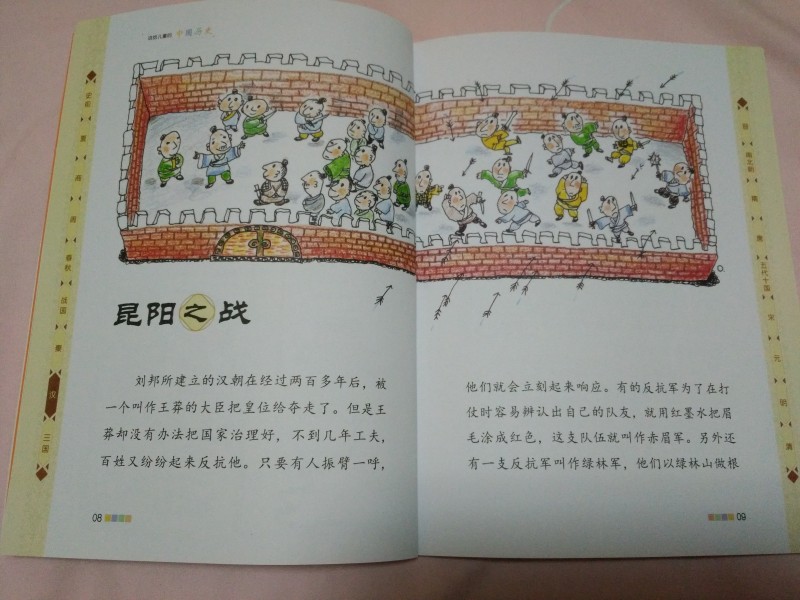 送给儿童的 中国历史
史前
夏
商
周
春秋
战国
秦
汉
三国
昆阳之战
刘邦所建立的汉朝在经过两百多年后，被
一个叫作王莽的大臣把皇位给夺走了。但是王
莽却没有办法把国家治理好，不到几年工夫，
百姓又纷纷起来反抗他。只要有人振臂一呼，
08
南北朝
隋
唐
五代十国
宋
元
明
清
他们就会立刻起来响应。有的反抗军为了在打
仗时容易辨认出自己的队友，就用红墨水把眉
毛涂成红色，这支队伍就叫作赤眉军。另外还
有一支反抗军叫作绿林军，他们以绿林山做根
09